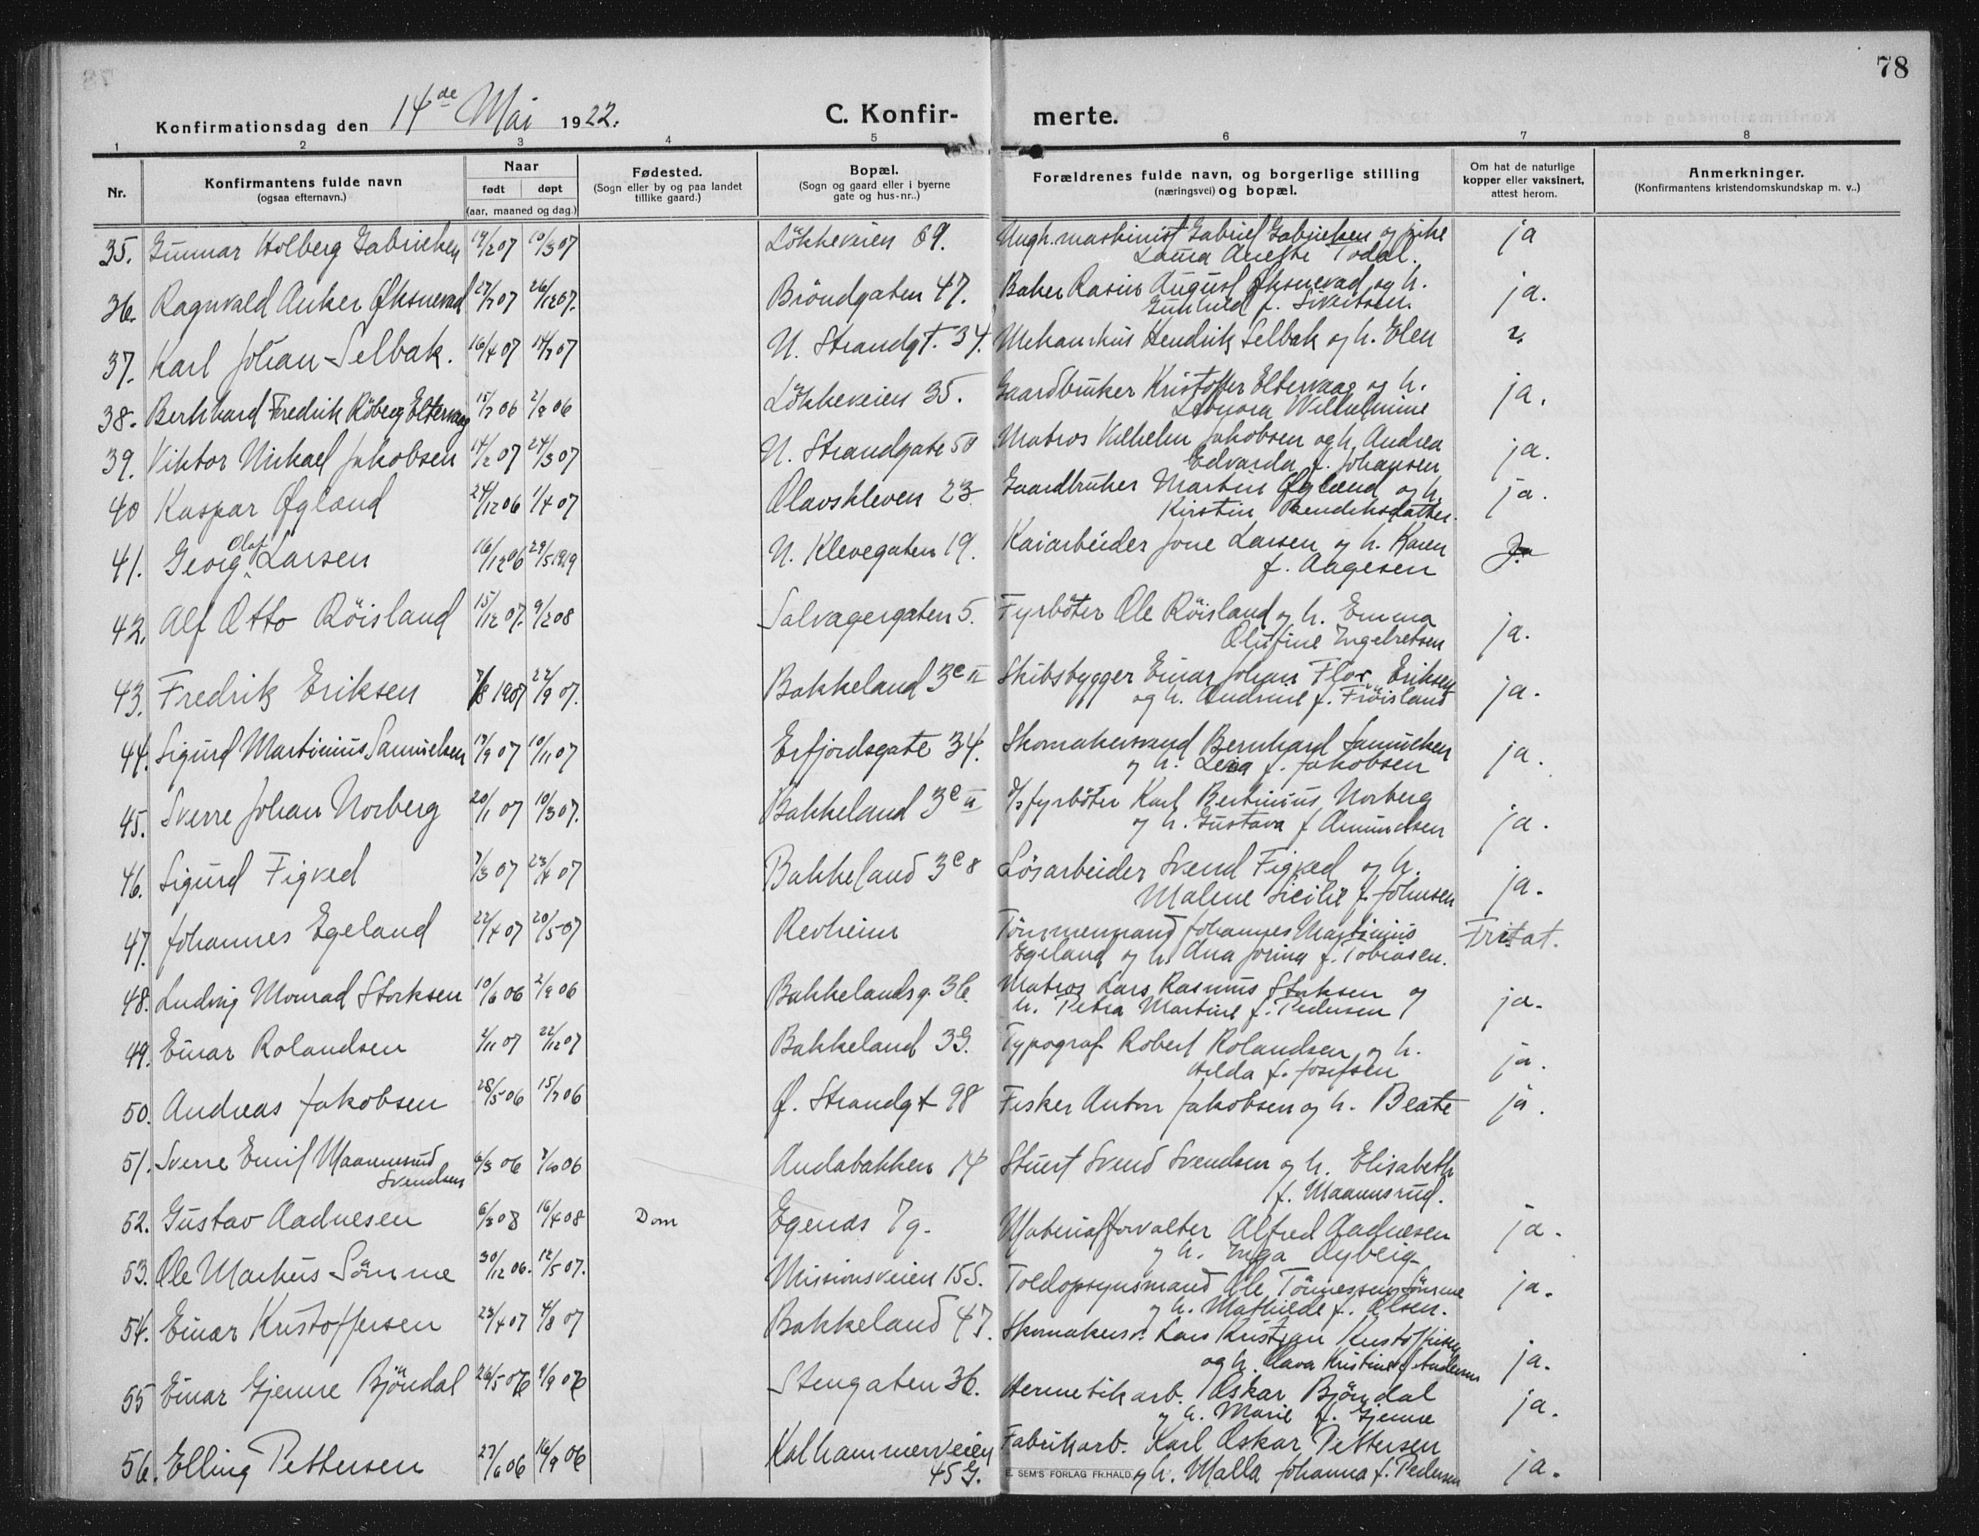 78
Konfirmationsdag den 14de Mai 1922. C. Konfir- merte.
1 2 3 4 5 6 7 8
Nr. Konfirmantens fulde navn (ogsaa efternavn.) Naar født døpt (aar, maaned og dag.) Fødested. (Sogn eller by og paa landet tillike gaard.) Bopæl. (Sogn og gaard eller i byerne gate og hus-nr..) Forældrenes fulde navn, og borgerlige stilling (næringsvei) og bopæl. Om hat de naturlige kopper eller vaksinert, attest herom. Anmerkninger. (Konfirmantens kristendomskundskap m. v..)
35. Gunnar Holberg Gabrielsen 19/2 07 10/3 07 Lökkeveien 69. Ungk. maskinist Gabriel Gabrielsen og pike ja
Laura Anette Todal.
36. Ragnvald Anker Øksnevad 27/7 07 26/12 07. Bröndgaten 47. Baker Rasmus August Øksnevad og h. ja.
Gunhild f. Sivertsen
37. Karl Johan Selbak. 16/4 07 14/7 07 N. Strandgt. 34. Mekanikus Hendrik Selbak og h. Elen
38. Bernhard Fredrik Röberg Eltervaag 15/7 06 2/8 06 Lökkeveien 35. Gaardbruker Kristoffer Eltervaag og h. ja.
Leonora Wilhelmine
39. Viktor Mikael Jakobsen 14/2 07 24/3 07 N. Strandgate 50 Matros Vilhelm Jakobsen og h. Andrea ja.
Edvarda f. Johansen
40 Kaspar Øgland 24/12 06 1/4 07 Olavskleven 23 Gaardbruker Martin Øgland og h. ja.
Kirstin Bendiksdatter.
41. Georg Olaf Larsen 16/12 06 29/5 1919 N. Klevegaten 19. Kaiarbeider Jone Larsen og h. Karen Ja
f. Aagesen
42. Alf Otto Röisland 15/12 07. 9/2 08 Solvagergaten 5. Fyrböter Ole Röisland og h. Emma ja.
Olufine Engelretsen
43. Fredrik Eriksen 7/8 1907 22/9 07. Bakkeland 3c II Skibsbygger Einar Johan Flor Eriksen ja.
og h. Andrine f. Fröisland
44. Sigurd Martinius Samuelsen 13/9 07 10/11 07 Erfjordsgate 34. Skomakersvend Bernhard Samuelsen ja.
og h. Lena f. Jakobsen
45. Sverre Johan Norberg 20/1 07 10/3 07. Bakkeland 3c II D/s fyrböter Karl Bertinius Norberg ja.
og h. Gustava f. Amundsen
46. Sigurd Figved 7/3 07 23/4 07 Bakkeland 3c 8 Lösarbeider Svend Figved og h. ja.
Malene Sicilie f. Johnsen
47. Johannes Egeland 22/4 07 20/5 07 Revheim Tömmermand Johannes Martinius Fritat.
Egeland og h. Ana Jorina f. Tobiasen.
48. Ludvig Monrad Storksen 10/6 06 2/9 06 Bakkelandsg. 36. Matros Lars Rasmus Storksen og ja.
h. Petra Martine f. Pedersen
49. Einar Rolandsen 2/11 07 22/12 07 Bakkeland 3G. Typograf Robert Rolandsen og h. ja.
Hilda f. Josefsen
50. Andreas Jakobsen 28/5 06 15/7 06 Ø. Strandgt 98 Fisker Anton Jakobsen og h. Beate ja.
51. Sverre Emil Maanumsrud 6/3 06 7/10 06 Andabakken 14 Stuert Svend Svendsen og h. Elisabeth
Svendsen f. Maanumsrud.
52. Gustav Aadnesen 6/3 08 16/4 08 Dom Egenæs 7g. Materialforvalter Alfred Aadnesen ja.
og h. Inga Nyberg
53. Ole Markus Sömme 30/12 06. 12/5 07. Missionsveien 15S. Toldopsynsmand Ole Tönnessen Sömme ja.
og h. Mathilde f. Olsen.
54. Einar Kristoffersen 23/4 07 4/8 07 Bakkeland 47. Skomakersv. Lars Kristian Kristoffersen ja.
og h. Lava Kristine f. Andersen
55 Einar Gjemre Bjöndal 26/5 06 9/9 06 Stengaten 36. Hermetikarb. Oskar Bjöndal ja.
og h. Marie f. Gjemre
56. Elling Pettersen 27/6 06 16/9 06 Kalhammerveien Fabrikarb. Karl Oskar Pettersen ja.
45G. E. SEM'S FORLAG FR.HALD. og h. Malla Johanna f. Pedersen